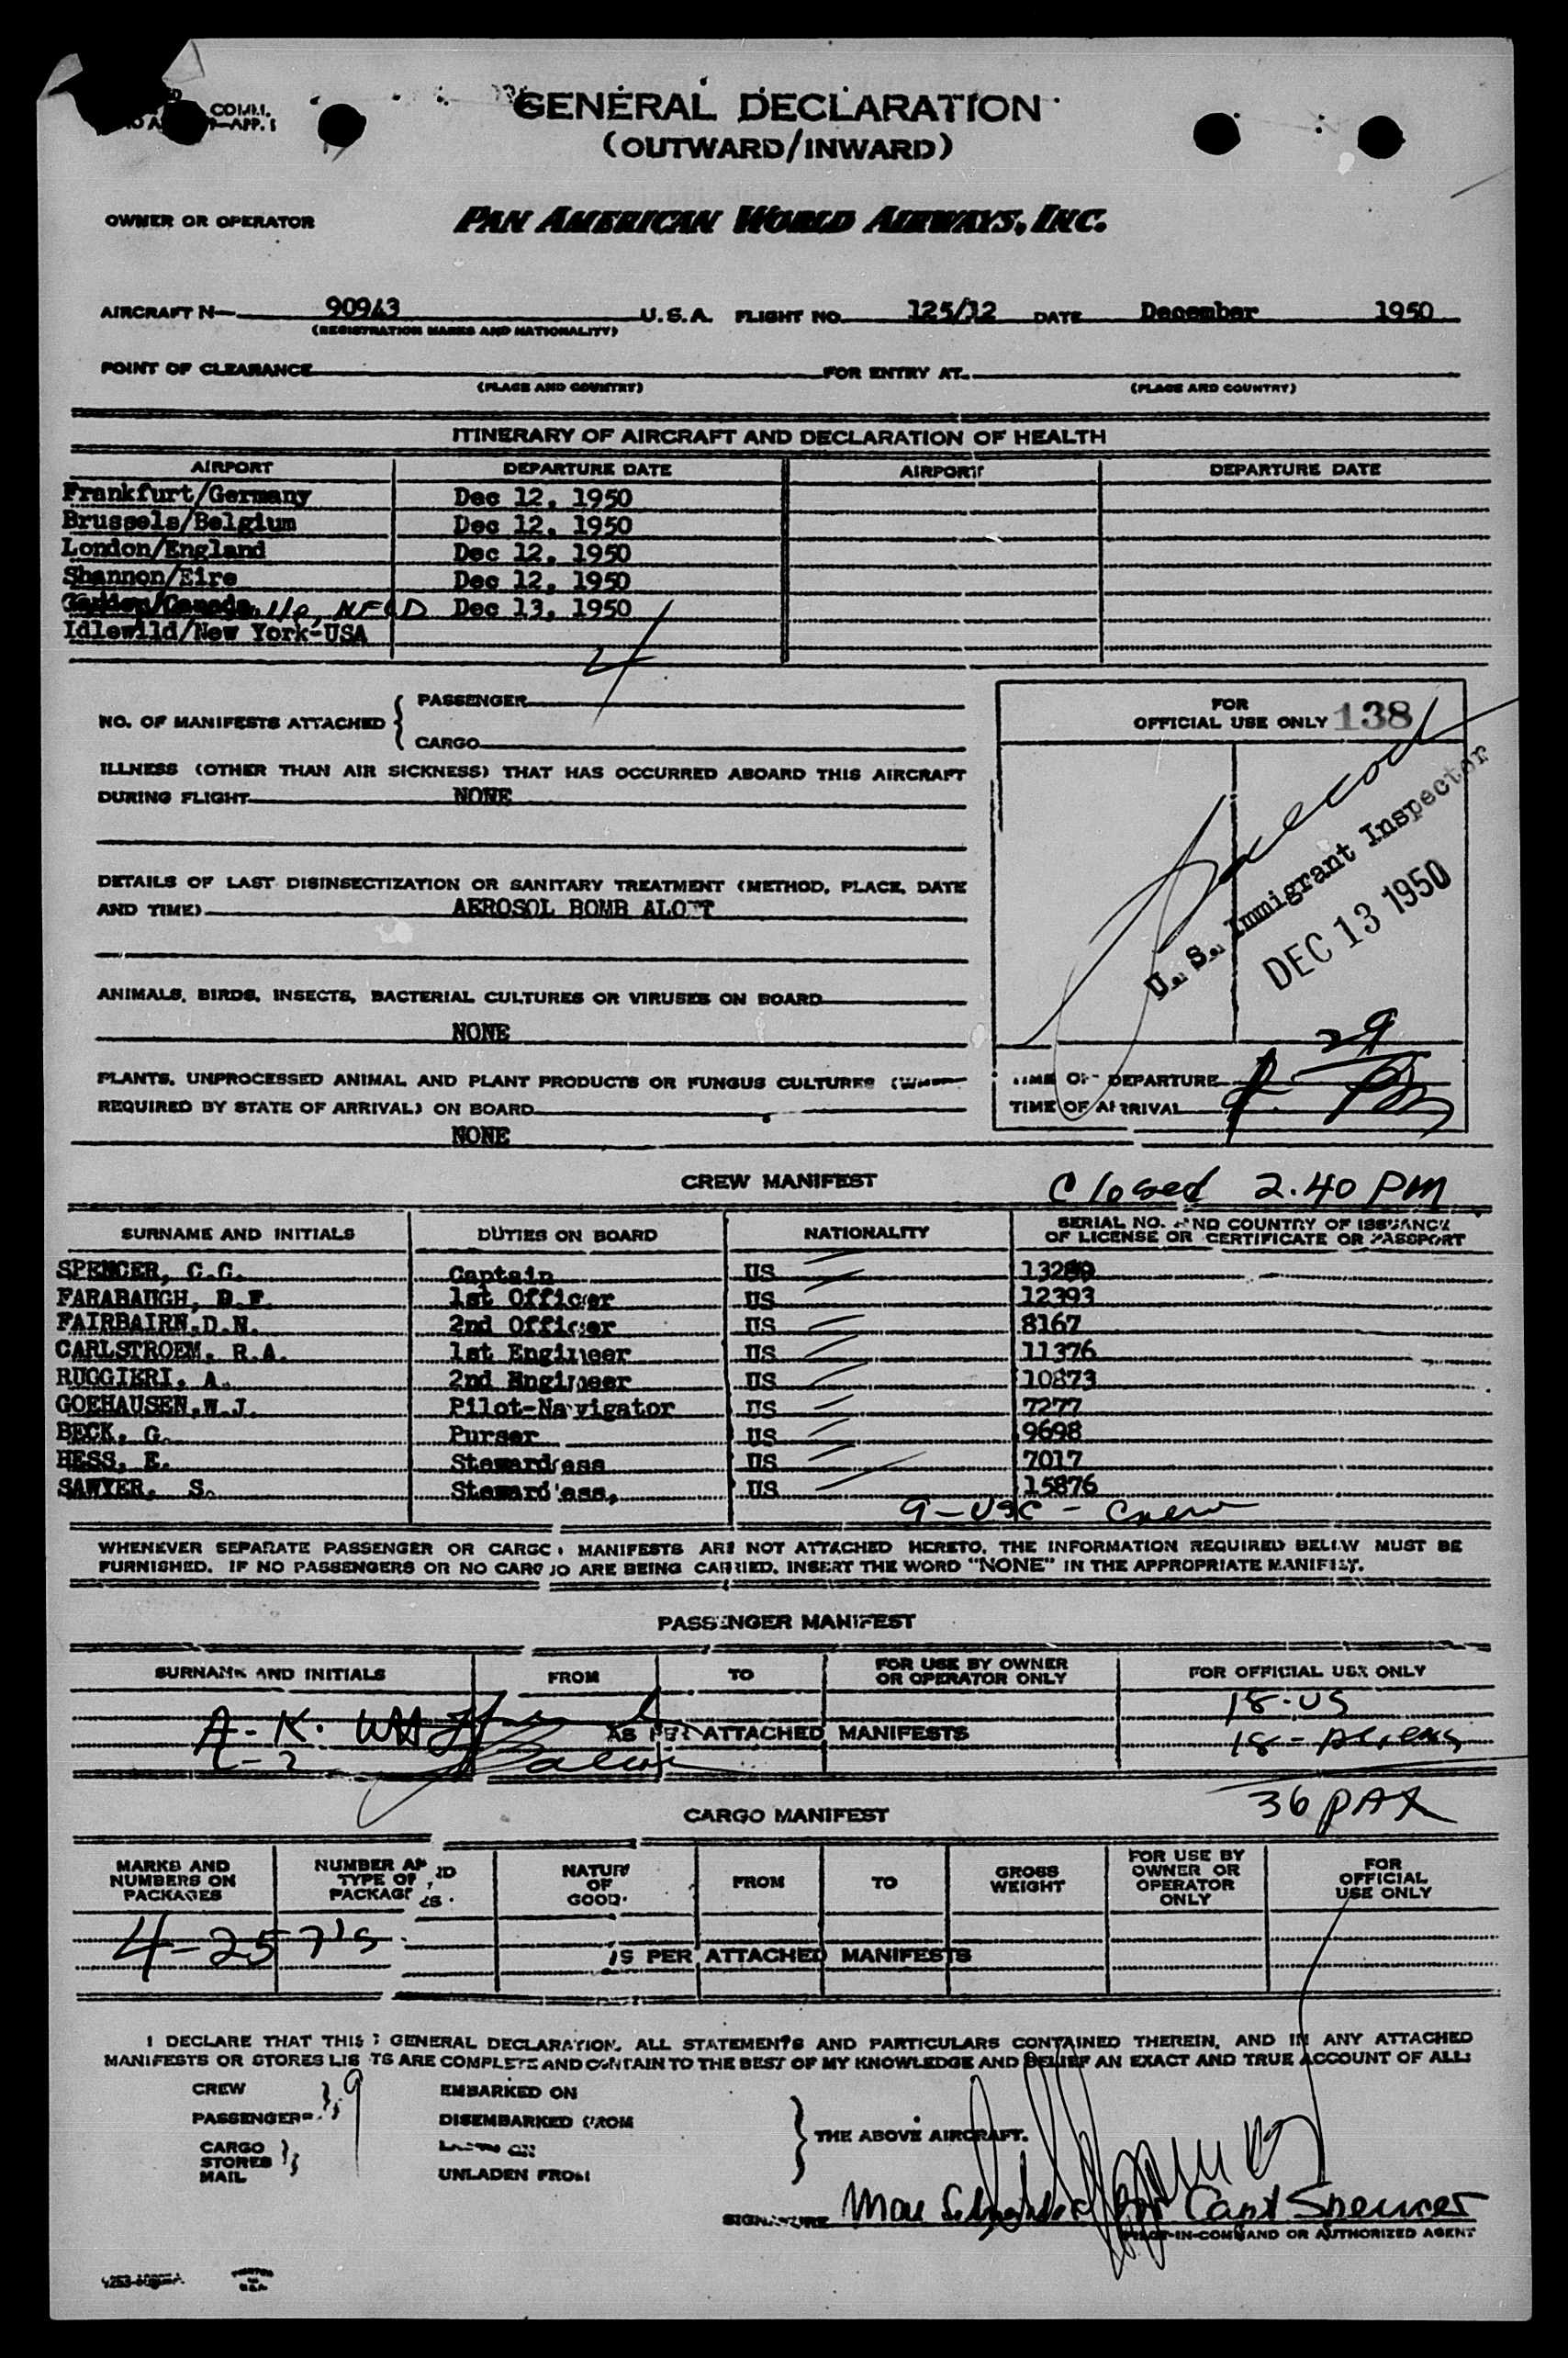 COMM.
—APP. 1
GENERAL DECLARATION
(OUTWARD/INWARD)
OWNER OR OPERATOR PAN AMERICAN WORLD AIRWAYS, INC.
AIRCRAFT N— 90943 U.S.A. FLIGHT NO. 125/12 DATE December 1950
(REGISTRATION MARKS AND NATIONALITY)
POINT OF CLEARANCE FOR ENTRY AT
(PLACE AND COUNTRY) (PLACE AND COUNTRY)
ITINERARY OF AIRCRAFT AND DECLARATION OF HEALTH
AIRPORT DEPARTURE DATE AIRPORT DEPARTURE DATE
Frankfurt/Germany Dec 12, 1950
Brussels/Belgium Dec 12, 1950
London/England Dec 12, 1950
Shannon/Eire Dec 12, 1950
NFLD Dec 13, 1950
Idlewild/New York-USA
4
NO. OF MANIFESTS ATTACHED { PASSENGER
CARGO
FOR
OFFICIAL USE ONLY 138
ILLNESS (OTHER THAN AIR SICKNESS) THAT HAS OCCURRED ABOARD THIS AIRCRAFT
DURING FLIGHT NONE
DETAILS OF LAST DISINSECTIZATION OR SANITARY TREATMENT (METHOD, PLACE, DATE
AND TIME) AEROSOL BOMB ALOFT
U. S. Immigrant Inspector
DEC 13 1950
ANIMALS, BIRDS, INSECTS, BACTERIAL CULTURES OR VIRUSES ON BOARD
NONE
PLANTS, UNPROCESSED ANIMAL AND PLANT PRODUCTS OR FUNGUS CULTURES (WHEN
REQUIRED BY STATE OF ARRIVAL) ON BOARD
NONE
29
TIME OF DEPARTURE
TIME OF ARRIVAL
CREW MANIFEST Closed 2.40 PM
SURNAME AND INITIALS DUTIES ON BOARD NATIONALITY SERIAL NO. AND COUNTRY OF ISSUANCE OF LICENSE OR CERTIFICATE OR PASSPORT
SPENCER, C.C. Captain US
FARABAUGH, D.F. 1st Officer US 12393
FAIRBAIRN, D.N. 2nd Officer US 8167
CARLSTROEM, R.A. 1st Engineer US 11376
RUGGIERI, A. 2nd Engineer US 10873
GOEHAUSEN, W.J. Pilot-Navigator US 7277
BECK, G. Purser US 9698
HESS, E. Stewardess US 7017
SAWYER, S. Stewardess, US 15876
9 - USC - Crew
WHENEVER SEPARATE PASSENGER OR CARGO MANIFESTS ARE NOT ATTACHED HERETO, THE INFORMATION REQUIRED BELOW MUST BE
FURNISHED. IF NO PASSENGERS OR NO CARGO ARE BEING CARRIED, INSERT THE WORD "NONE" IN THE APPROPRIATE MANIFEST.
PASSENGER MANIFEST
SURNAME AND INITIALS FROM TO FOR USE BY OWNER OR OPERATOR ONLY FOR OFFICIAL USE ONLY
18-US
A-K:
AS PER ATTACHED MANIFESTS
18 - Aliens
36 PAX
CARGO MANIFEST
MARKS AND NUMBERS ON PACKAGES NUMBER AND TYPE OF PACKAGES NATURE OF GOODS FROM TO GROSS WEIGHT FOR USE BY OWNER OR OPERATOR ONLY FOR OFFICIAL USE ONLY
4-257's
AS PER ATTACHED MANIFESTS
I DECLARE THAT THIS GENERAL DECLARATION, ALL STATEMENTS AND PARTICULARS CONTAINED THEREIN, AND IN ANY ATTACHED
MANIFESTS OR STORES LISTS ARE COMPLETE AND CONTAIN TO THE BEST OF MY KNOWLEDGE AND BELIEF AN EXACT AND TRUE ACCOUNT OF ALL:
CREW 9 EMBARKED ON
PASSENGERS DISEMBARKED FROM
THE ABOVE AIRCRAFT.
CARGO
STORES
MAIL UNLADEN FROM
SIGNATURE Capt Spencer
PILOT-IN-COMMAND OR AUTHORIZED AGENT
PRINTED IN U.S.A.